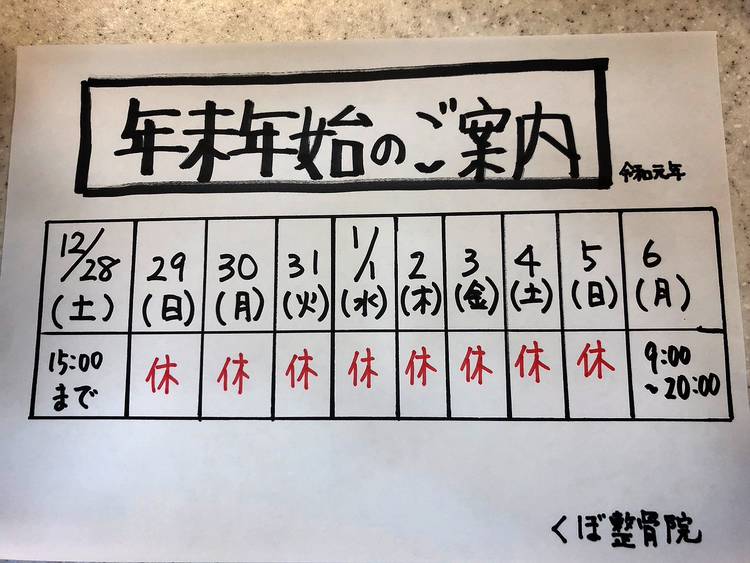 年末年始のご案内
令和元年
12/28 29 30 31 1/1 2 3 4 5 6
(土) (日) (月) (火) (水) (木) (金) (土) (日) (月)
15:00 休 休 休 休 休 休 休 休 9:00
まで ~20:00
くぼ整骨院